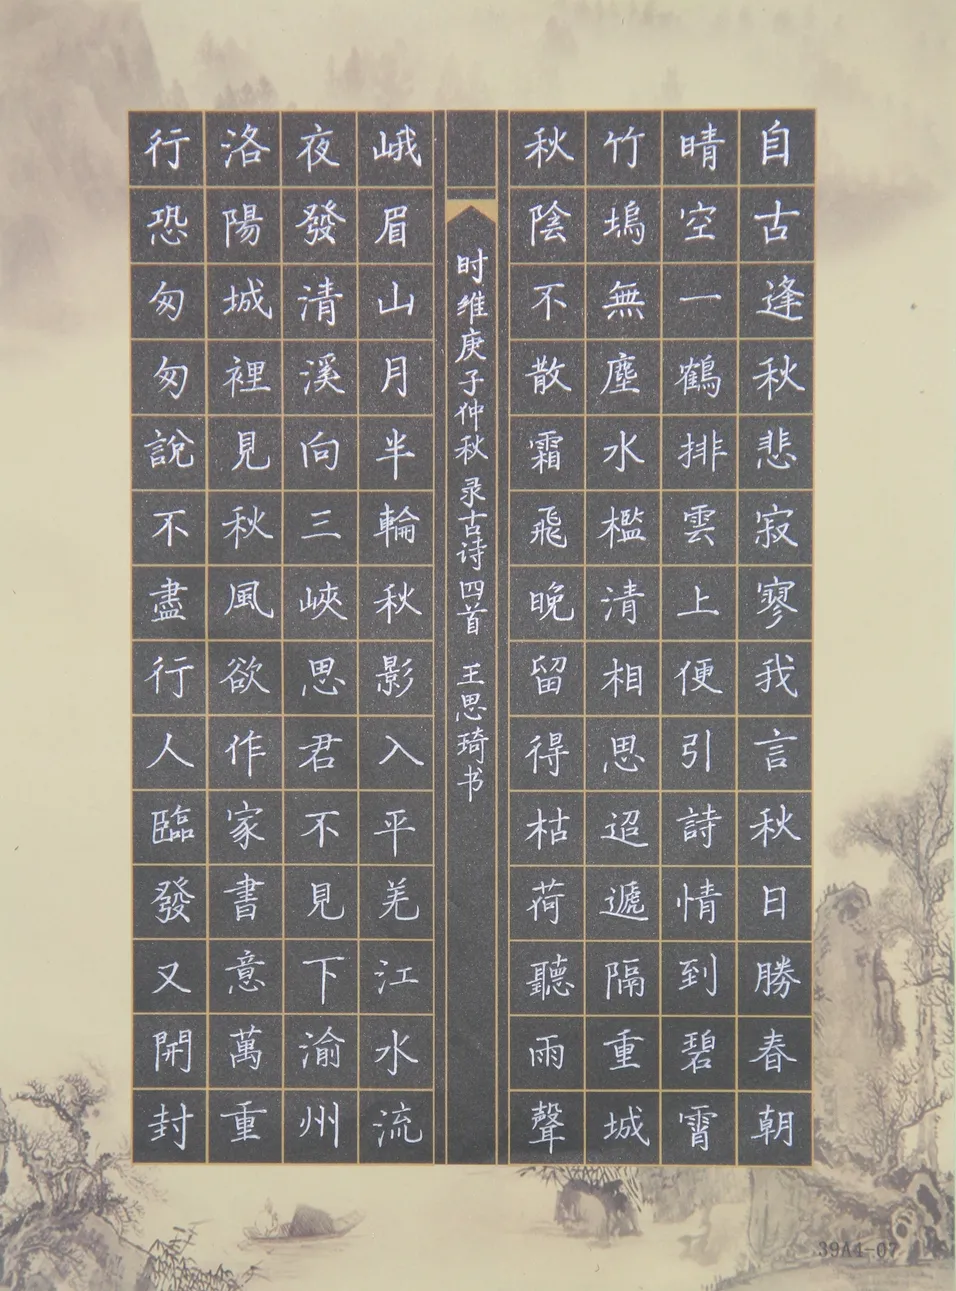 自古逢秋悲寂寥我言秋日勝春朝
晴空一鶴排雲上便引詩情到碧霄
竹塢無塵水檻清相思迢遞隔重城
秋陰不散霜飛晚留得枯荷聽雨聲
时维庚子仲秋 录古诗四首 王思琦书
峨眉山月半輪秋影入平羌江水流
夜發清溪向三峽思君不見下渝州
洛陽城裡見秋風欲作家書意萬重
行恐匆匆說不盡行人臨發又開封
39A4-07